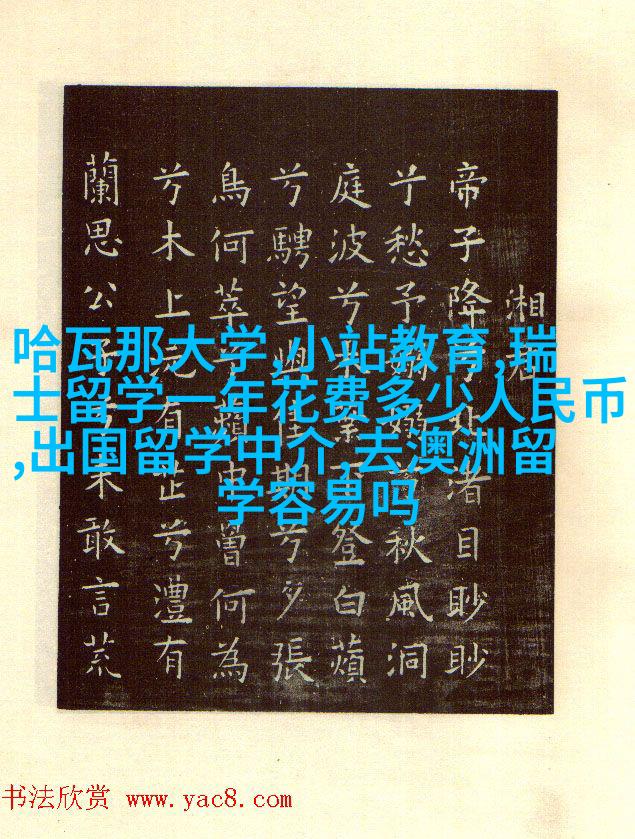 哈瓦那大学,小站教育,瑞
士留学一年花费多少人民币
,出国留学中介,去澳洲留
学容易吗
湘
帝子降兮渚目眇眇
兮愁予嫋兮秋風洞
庭波兮登白蘋
兮騁望與佳期兮夕張
鳥何萃兮蘋中罾何為
兮木上沅有芷兮澧有
蘭思公子兮未敢言荒
书法欣赏 www.yac8.com